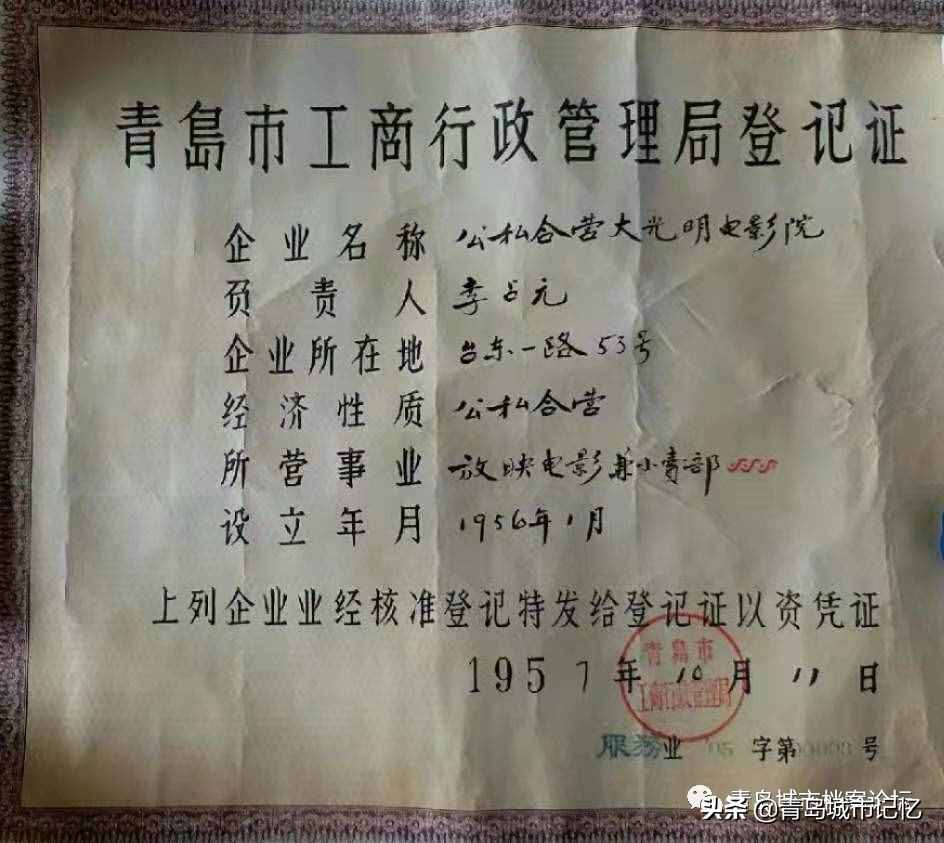 青島市工商行政管理局登记证
企业名称 公私合营大光明电影院
负责人 李占元
企业所在地 台东一路53号
经济性质 公私合营
所营事业 放映电影兼小卖部
设立年月 1956年1月
上列企业业经核准登记特发给登记证以资凭证
1957年10月11日
青島市
工商行政管理局
服務业 05 字第 号
青岛城市档案论坛
头条 @青岛城市记忆